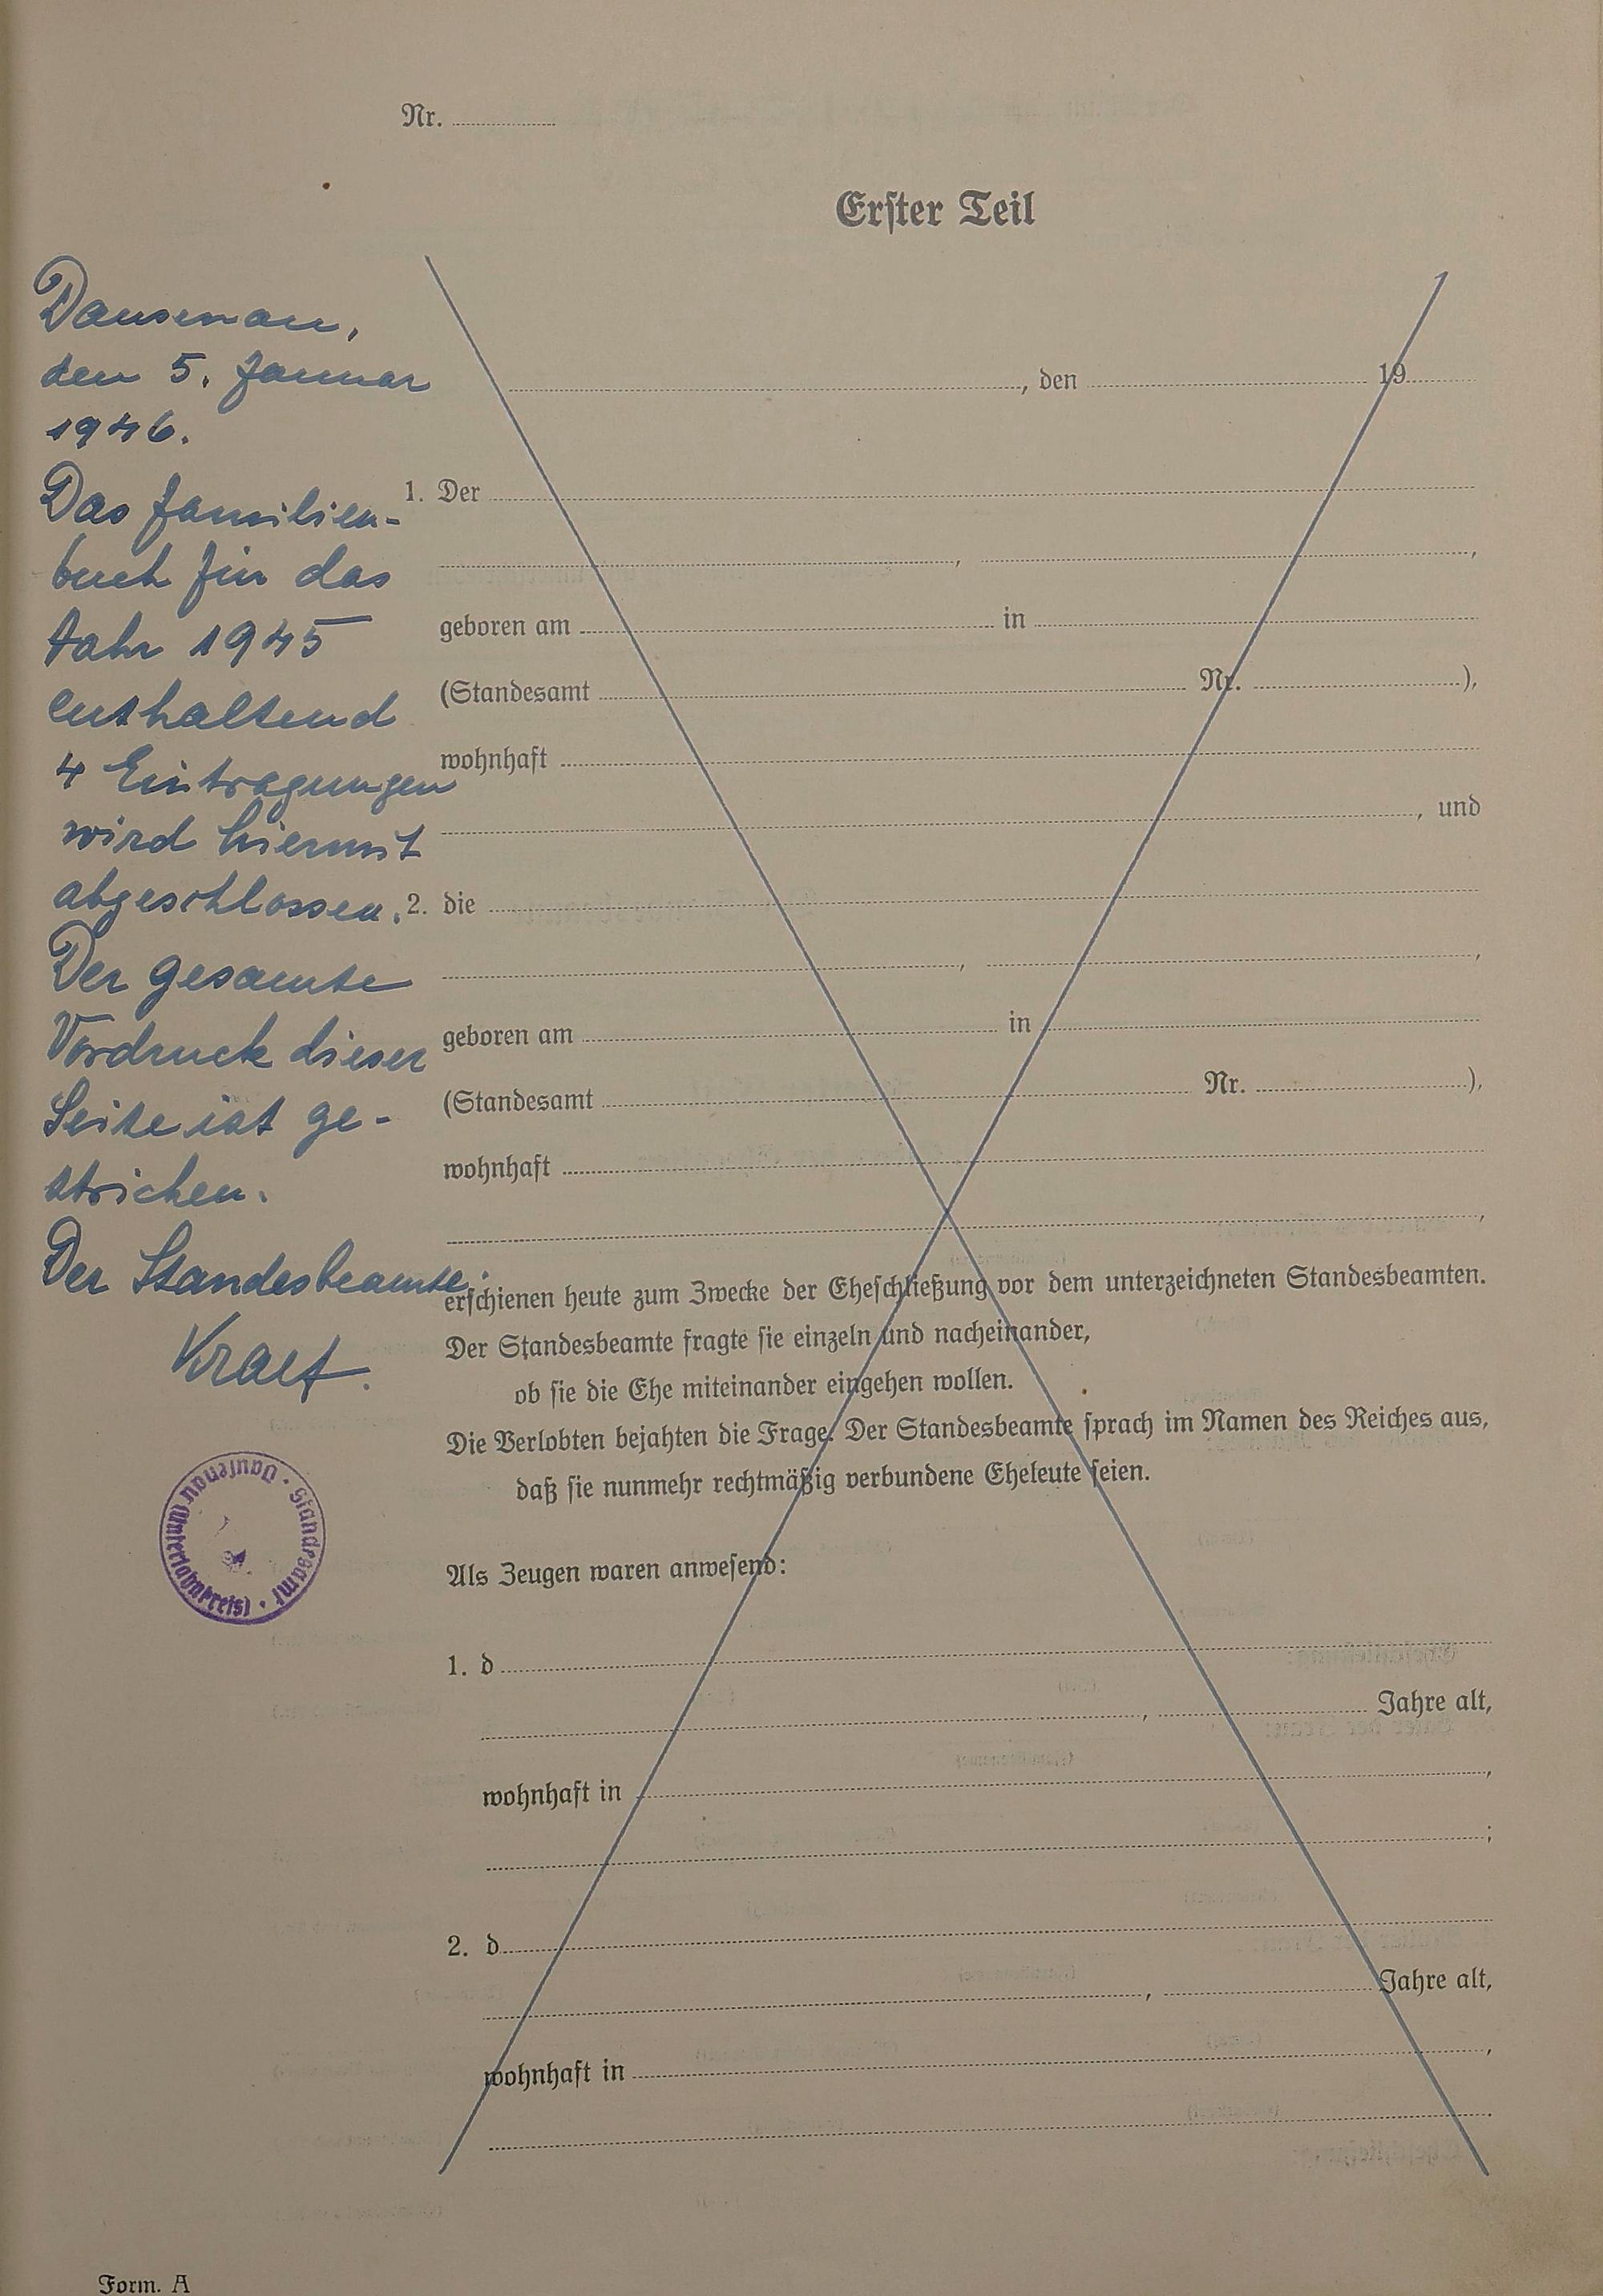 Nr.
Erster Teil
Dausenau,
den 5. Januar
1946.
Das Familien-
buch für das
Jahr 1945
enthaltend
4 Eintragungen
wird hiermit
abgeschlossen.
Der gesamte
Vordruck dieser
Seite ist ge-
strichen.
Der Standesbeamte:
Kraft.
Standesamt · Dausenau (Unterlahnkreis) ·
, den 19
1. Der
, ,
geboren am in
(Standesamt Nr. ),
wohnhaft
, und
2. die
, ,
geboren am in
(Standesamt Nr. ),
wohnhaft
,
erschienen heute zum Zwecke der Eheschließung vor dem unterzeichneten Standesbeamten.
Der Standesbeamte fragte sie einzeln und nacheinander,
ob sie die Ehe miteinander eingehen wollen.
Die Verlobten bejahten die Frage. Der Standesbeamte sprach im Namen des Reiches aus,
daß sie nunmehr rechtmäßig verbundene Eheleute seien.
Als Zeugen waren anwesend:
1. d
, Jahre alt,
wohnhaft in ,
;
2. d
, Jahre alt,
wohnhaft in ,
Form. A